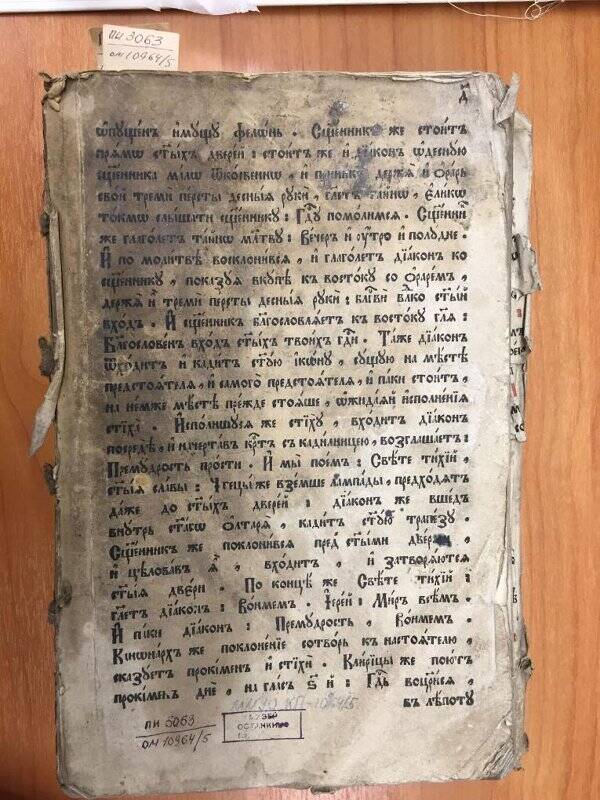 ПИ 3063
ОМ 10964/5
д҃
ѡ҆пꙋще́нъ и҆мꙋ́щꙋ фело́нь . Сщ҃е́нникꙋ же стои́тъ
прѧ́мѡ ст҃ы́хъ двере́й : стои́тъ же и҆ дїа́конъ ѡ҆деснꙋ́ю
сщ҃е́нника ма́лѡ и҆ держѧ̀ и҆ ѻ҆ра́рь
сво́й тремѝ персты̀ десны́ѧ рꙋкѝ , гл҃етъ та́йнѡ , є҆ли́кѡ
то́кмѡ слы́шати сщ҃е́нникꙋ : Гдⷭ҇ꙋ помо́лимсѧ . Сщ҃е́нникъ
же глаго́летъ та́йнѡ мл҃твꙋ : Ве́черъ и҆ ᲂу҆́тро и҆ полꙋ́дне .
И҆ по моли́твѣ восклони́всѧ , и҆ глаго́летъ дїа́конъ ко
сщ҃е́нникꙋ , показꙋ́ѧ вкꙋ́пѣ къ восто́кꙋ со ѻ҆раре́мъ ,
держѧ̀ и҆ тремѝ персты̀ десны́ѧ рꙋкѝ : бл҃гвѝ влⷣко ст҃ы́й
вхо́дъ . И҆ сщ҃е́нникъ бл҃гословлѧ́етъ къ восто́кꙋ гл҃ѧ :
Бл҃гослове́нъ вхо́дъ ст҃ы́хъ твои́хъ гдⷭ҇и . Та́же дїа́конъ
ѿхо́дитъ и҆ кади́тъ ст҃ꙋ́ю і҆кѡ́нꙋ , сꙋ́щꙋю на мѣ́стѣ
предстоѧ́телѧ , и҆ самого̀ предстоѧ́телѧ , и҆ па́ки стои́тъ ,
на не́мже мѣ́стѣ пре́жде стоѧ́ше , ѡ҆жида́ѧ и҆сполне́нїѧ
стїхѝ . И҆спо́лншꙋсѧ же стїхꙋ̀ , вхо́дитъ дїа́конъ
посредѣ̀ , и҆ начерта́въ крⷭ҇тъ съ кади́лницею , возглаша́етъ :
Премꙋ́дрость про́сти . И҆ мы̀ пое́мъ : Свѣ́те ти́хїй ,
ст҃ы́ѧ сла́вы : Чтецы́ же взе́мше лампа́ды , предхо́дѧтъ
да́же до ст҃ы́хъ двере́й : дїа́конъ же вше́дъ
внꙋ́трь ст҃а́гѡ ѻ҆лтарѧ̀ , кади́тъ ст҃ꙋ́ю трапе́зꙋ .
Сщ҃е́нникъ же поклони́всѧ пред ст҃ы́ми две́рьми ,
и҆ цѣлова́въ ѧ҆̀ , вхо́дитъ , и҆ затворѧ́ютсѧ
ст҃ы́ѧ две́ри . По концѣ́ же Свѣ́те ти́хїй :
гл҃етъ дїа́конъ : Во́нмемъ . І҆ере́й : Ми́ръ всѣ́мъ .
И҆ па́ки дїа́конъ : Премꙋ́дрость , Во́нмемъ .
Канѡна́рхъ же поклоне́нїе сотво́рь къ настоѧ́телю ,
сказꙋ́етъ проки́менъ и҆ стїхѝ . Кли́рїцы же пою́тъ
проки́менъ днѐ , на гла́съ ѕ҃ й : Гдⷭ҇ь воцр҃и́сѧ ,
въ лѣ́потꙋ
ПИ 5063
ОМ 10964/5
МУЗЕЙ
ОСТАНКИНО